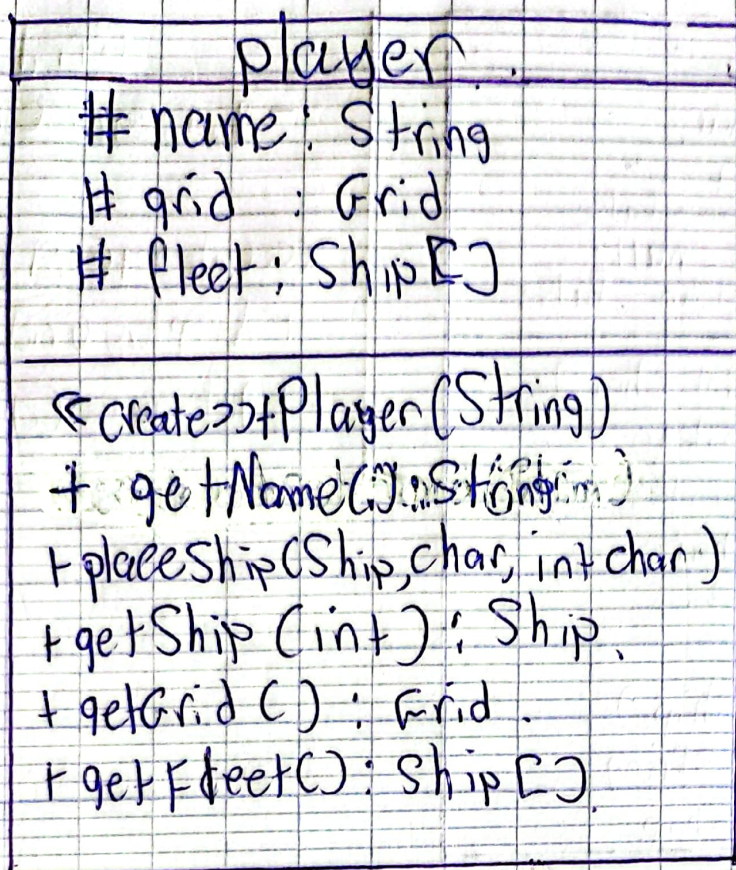 player
# name : String
# grid : Grid
# fleet : Ship []
<<create>>+Player(String)
+ getName() : String
+placeShip(Ship, char, int char)
+ getShip (int) : Ship.
+ getGrid () : Grid.
+ getFleet() : Ship [].